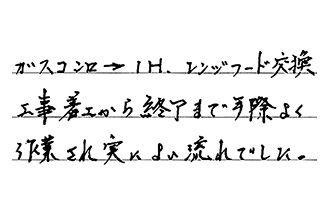 ガスコンロ→IH、レンジフード交換
工事着工から終了まで手際よく
作業され実によい流れでした。